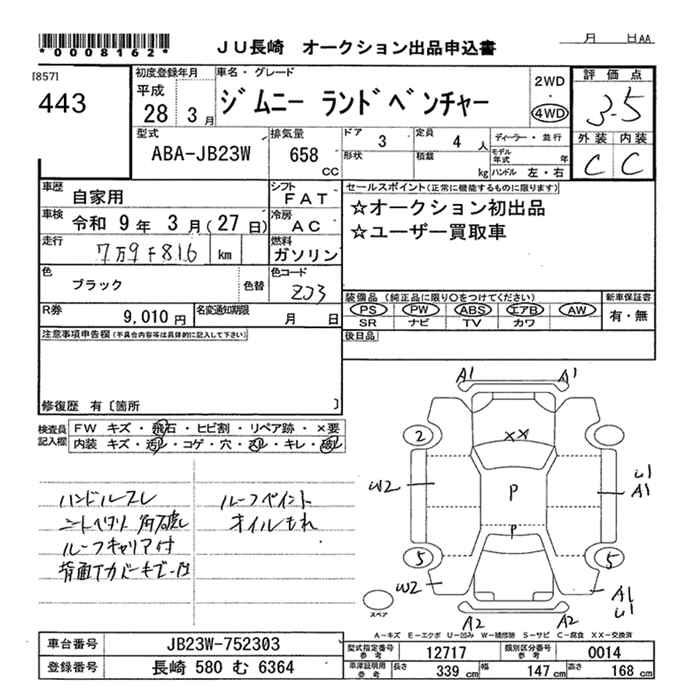 *0008162*
JU長崎 オークション出品申込書
月 日AA
[857]
443
初度登録年月
平成
28 3月
車名・グレード
ジムニー ランドベンチャー
2WD
4WD
評価点
3.5
外装 内装
C C
型式
ABA-JB23W
排気量
658
CC
ドア 3
形状
定員 4 人
積載 kg
ディーラー・並行
モデル年式 年
ハンドル 左・右
車歴
自家用
シフト
FAT
車検
令和 9年 3月(27日)
冷房
AC
走行
7万9千816 km
燃料
ガソリン
色
ブラック
色替
色コード
ZJ3
R券
9,010円
名変通知期限
月 日
セールスポイント(正常に機能するものに限ります)
☆オークション初出品
☆ユーザー買取車
装備品(純正品に限り○をつけてください)
PS PW ABS エアB AW
SR ナビ TV カワ
新車保証書
有・無
後日品
注意事項申告欄(不具合内容等は具体的に記入して下さい)
修復歴 有〔箇所 〕
検査員記入欄
FW キズ・飛石・ヒビ割・リペア跡・×要
内装 キズ・汚レ・コゲ・穴・スレ・キレ・破レ
ハンドルスレ
ルーフキャリア付
ルーフペイント
オイルもれ
A1 A1
2
XX
W2
P
U1
A1
P
5 5
W2
A1
U1
A2 A2
スペア
A-キズ E-エクボ U-凹み W-補修跡 S-サビ C-腐食 XX-交換済
車台番号 JB23W-752303
型式指定番号参考 12717
類別区分番号参考 0014
登録番号 長崎 580 む 6364
車庫証明用参考 長さ 339 cm 幅 147 cm 高さ 168 cm